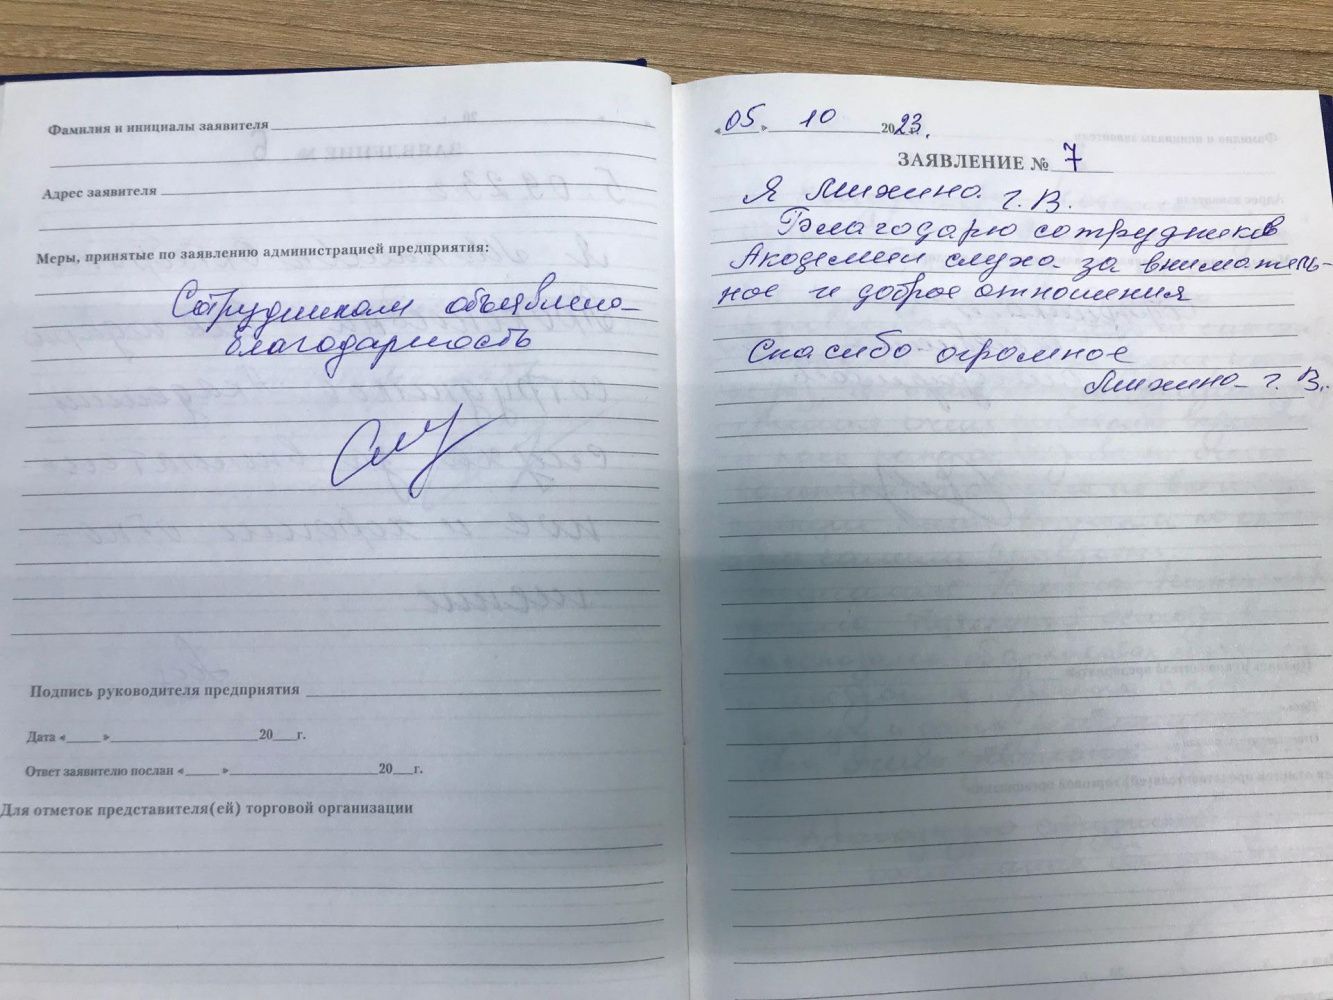 Фамилия и инициалы заявителя
Адрес заявителя
Меры, принятые по заявлению администрацией предприятия:
Сотрудникам объявлена
благодарность
Подпись руководителя предприятия
Дата « » 20 г.
Ответ заявителю послан « » 20 г.
Для отметок представителя(ей) торговой организации
«05» 10 2023 г.
ЗАЯВЛЕНИЕ № 7
Я Михина Г. В.
Благодарю сотрудников
Академии слуха за вниматель-
ное и доброе отношения
Спасибо огромное
Михина Г. В.